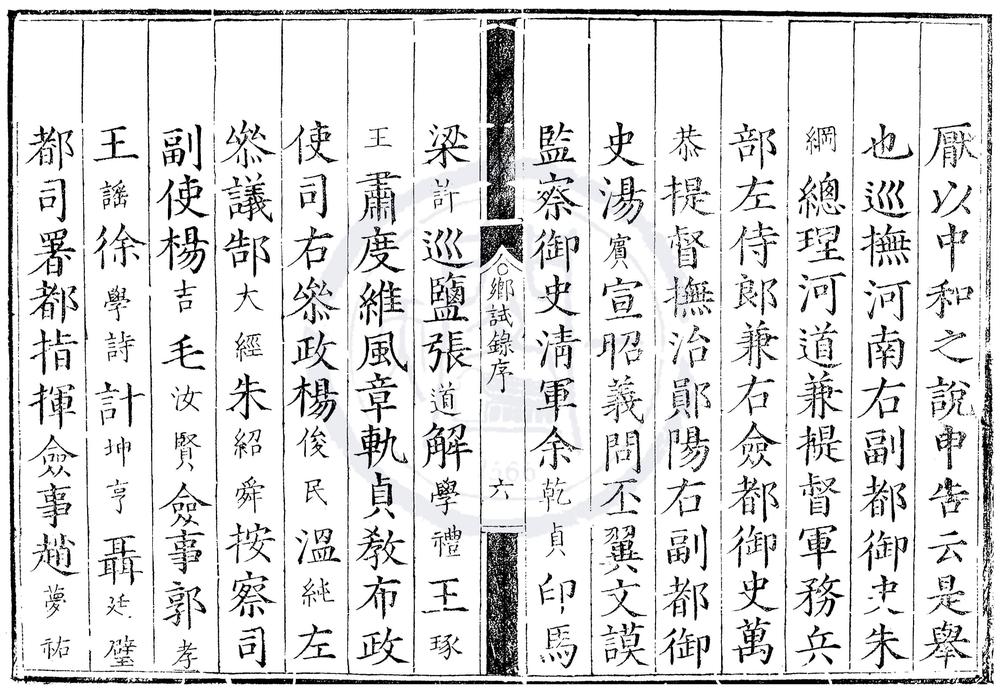 厭以中和之說申告云是舉
也巡撫河南右副都御史朱
綱總理河道兼提督軍務兵
部左侍郎兼右僉都御史萬
恭提督撫治鄖陽右副都御
史湯賓宣昭義問丕翼文謨
監察御史清軍余乾貞印馬
鄉試錄序 六
梁許巡鹽張道解學禮王琢
王肅度維風章軌貞教布政
使司右叅政楊俊民溫純左
叅議郜大經朱紹舜按察司
副使楊吉毛汝賢僉事郭孝
王謠徐學詩計坤亨聶廷璧
都司署都指揮僉事趙夢祐